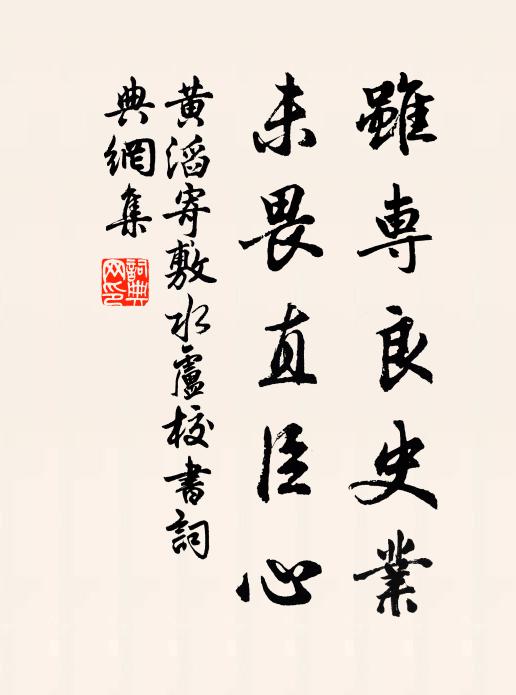 雖專良史業
未畏直臣心
黃滔寄敷水盧校書詞
典網集
詞典網印